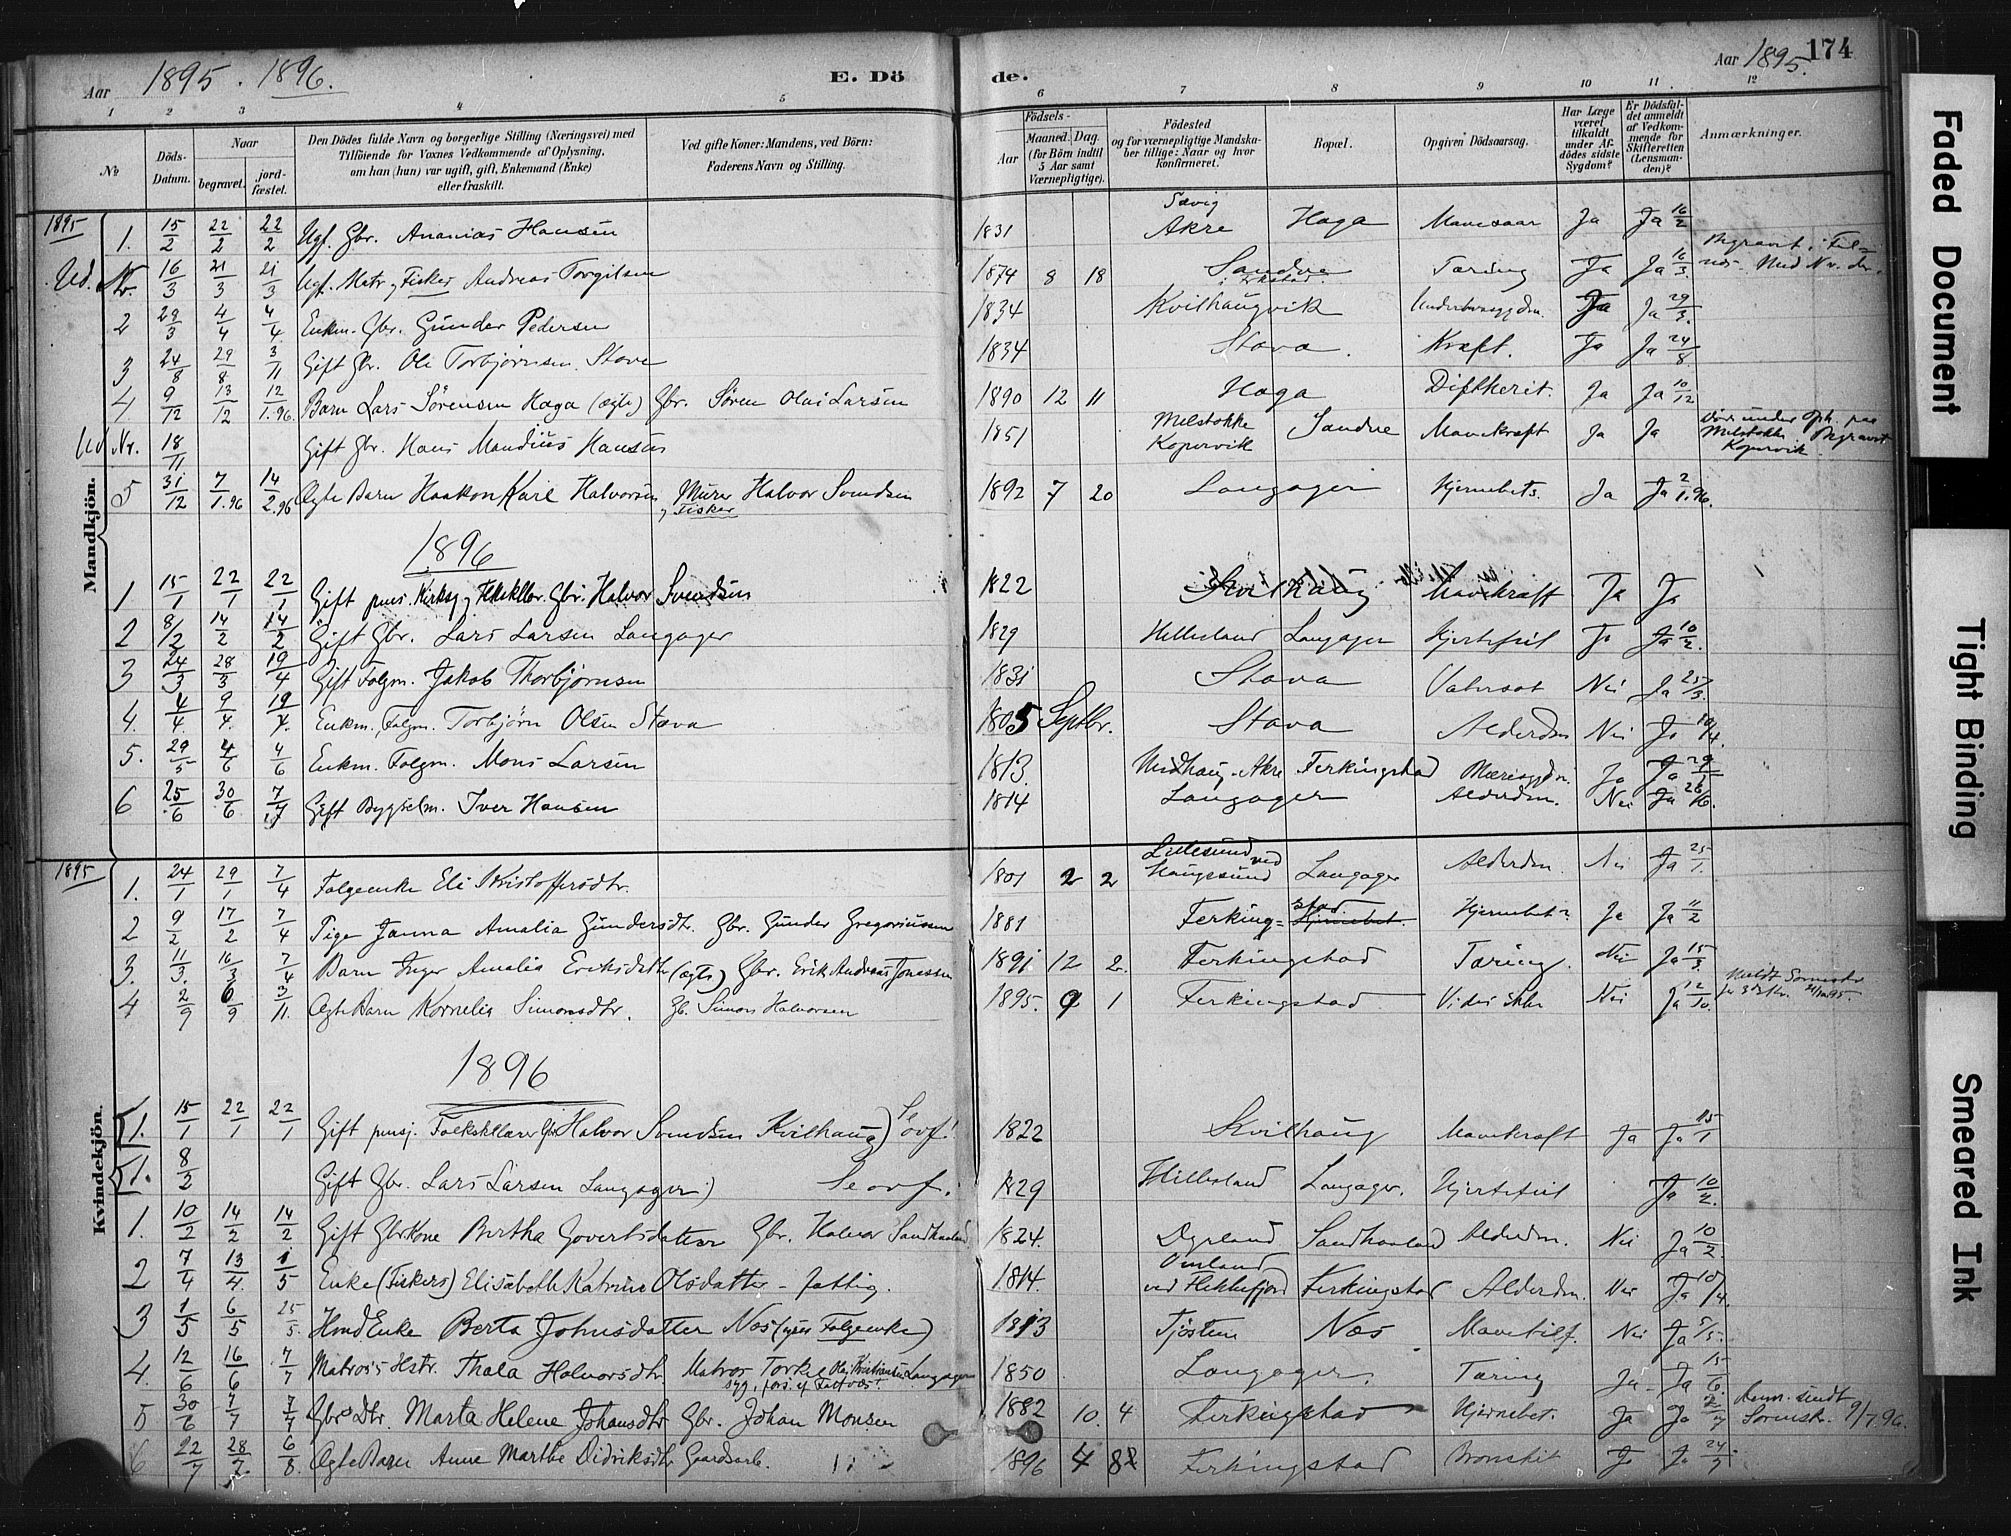 Aar 1895. 1896. E. Dö de. Aar 1895. 174
1 2 3 4 5 6 7 8 9 10 11 12
№ Döds-Datum. Naar begravet. jordfæstet. Den Dödes fulde Navn og borgerlige Stilling (Næringsvei) med Tilföiende for Voxnes Vedkommende af Oplysning, om han (hun) var ugift, gift, Enkemand (Enke) eller fraskilt. Ved gifte Koner: Mandens, ved Börn: Faderens Navn og Stilling. Födsels- Aar Maaned. Dag. (for Börn indtil 5 Aar samt Værnepligtige). Födested og for værnepligtige Mandskaber tillige: Naar og hvor konfirmeret. Bopæl. Opgiven Dödsaarsag. Har Læge været tilkaldt under Afdödes sidste Sygdom? Er Dödsfaldet anmeldt af Vedkommende for Skifteretten (Lensmanden)? Anmærkninger.
Mandkjön.
1895 1. 15/2 22/2 22/2 Ugf. Gbr. Ananias Hansen 1831 Sævig Akre Haga Mavesaar Ja Ja 16/2
Ud. Nr. 16/3 21/3 21/3 Ugf. Matr. og Fisker Andreas Torgilsen 1874 8 18 Sandve Tæring Ja Ja 16/3 Begravet i Falnes. Med Nr. der.
2 29/3 4/4 4/4 Enkm. Gbr. Gunder Pedersen 1834 Kvilhaugvik Ja Ja 29/3
3 24/8 29/8 3/11 Gift Gbr. Ole Torbjørnsen Stave 1834 Stava. Kræft. Ja Ja 24/8
4 9/12 13/12 12/1.96. Barn Lars Sørensen Haga (ægte) Gbr. Sören Olai Larsen 1890 12 11 Haga Diftherit. Ja Ja 10/12
Ud. Nr. 18/11 Gift Gbr. Hans Mandius Hansen 1851 Melstokke Kopervik Sandve Mavekræft Ja Ja Död under Oph. paa Melstokke. Begravet Kopervik.
5 31/12 7/1.96 14/2.96 Ægte Barn Haakon Kare Halvorsen Murer Halvor Svendsen og Fisker 1892 7 20 Langager Hjernebets. Ja Ja 2/1.96.
1896
1 15/1 22/1 22/1 Gift pens. Kirkes. og Folkskllær. Gbr. Halvor Svendsen 1822 Kvilhaug Mavekræft Ja Ja
2 8/2 14/2 14/2 Gift Gbr. Lars Larsen Langager 1829 Hillesland Langager Hjertefeil Ja Ja 10/2.
3 24/3 28/3 19/4 Gift Folgm. Jakob Thorbjörnsen 1831 Stava Vatersot Nei Ja 25/3.
4. 4/4. 9/4. 19/4. Enkm. Folgm. Torbjörn Olsen Stava 1805 Septbr. Stava Alderdom Nei Ja 10/4.
5. 29/5 4/6 4/6 Enkm. Folgm. Mons Larsen 1813. Medhaug-Akre Ferkingstad Ja Ja
6 25/6 30/6 7/7 Gift Bygselm. Iver Hansen 1814 Langager Alderdom. Nei Ja 26/6.
Kvindekjön.
1895 1. 24/1 29/1 7/4 Folgeenke Eli Kristoffersdtr. 1801 2 2 Lillesund ved Haugesund Langager Alderdom. Nei Ja 25/1.
2 9/2 17/2 7/4 Pige Janna Amalia Gundersdtr. Gbr. Gunder Gregoriussen 1881 Ferking=stad Hjernebet. Ja Ja 11/2
3. 11/3. 16/3 7/4 Barn Inger Amalia Eriksdatter (ægte) Gbr. Erik Andreas Jonassen 1891 12 2. Ferkingstad Tæring. Nei Ja 15/3.
4 2/9 6/9 3/11. Ægte Barn Kornelia Simonsdtr. Gb. Simon Halvorsen 1895. 9 1 Ferkingstad Vides ikke Nei Ja 12/10.
1896
1. 15/1 22/1 22/1 Gift pensj. Folkskllærer Gbr Halvor Svendsen Kvilhaug) Se ovf! 1822 Kvilhaug Mavekræft Ja Ja 15/1
1. 8/2 Gift Gbr. Lars Larsen Langager) Se ovf. 1829 Hillesland Langager. Hjertefeil Ja 10/2.
1. 10/2 14/2 14/2 Gift GbrKone Bertha Govertsdatter Gbr. Halvor Sandhaaland 1824. Dyrland Sandhaaland Alderdm. Nei Ja 10/2.
2 7/4 13/4. 1/5 Enke (Fiskers) Elisabeth Katrine Olsdatter - fattig. 1814. Omland ved Flekkefjord Ferkingstad Alderdm. Nei Ja 10/4.
3 1/5 6/5 25/5. HmdEnke Berta Johnsdatter Næs (yres Folgeenke) 1813 Tjösten Næs Nei Ja 5/5.
4. 12/6 16/6 7/7 Matros's Hstr. Thala Halvorsdtr Matros Torkel Olaj Kristiansen Langager 1850 Langager. Tæring Ja Ja 15/6.
5 30/6 7/7 7/7 Gbr's Dtr. Marta Helene Johansdtr Gbr. Johan Monsen 1882 10. 4 Ferkingstad Hjernebet. Ja Ja 2/7 Anm. sendt Sorensk. 9/7.96.
6 22/7 28/7. 6/8. Ægte Barn Anne Marthe Didriksdtr Gaardsarb. 1896 4 8 Ferkingstad Bronkit Ja Ja 24/7
Faded Document
Tight Binding
Smeared Ink